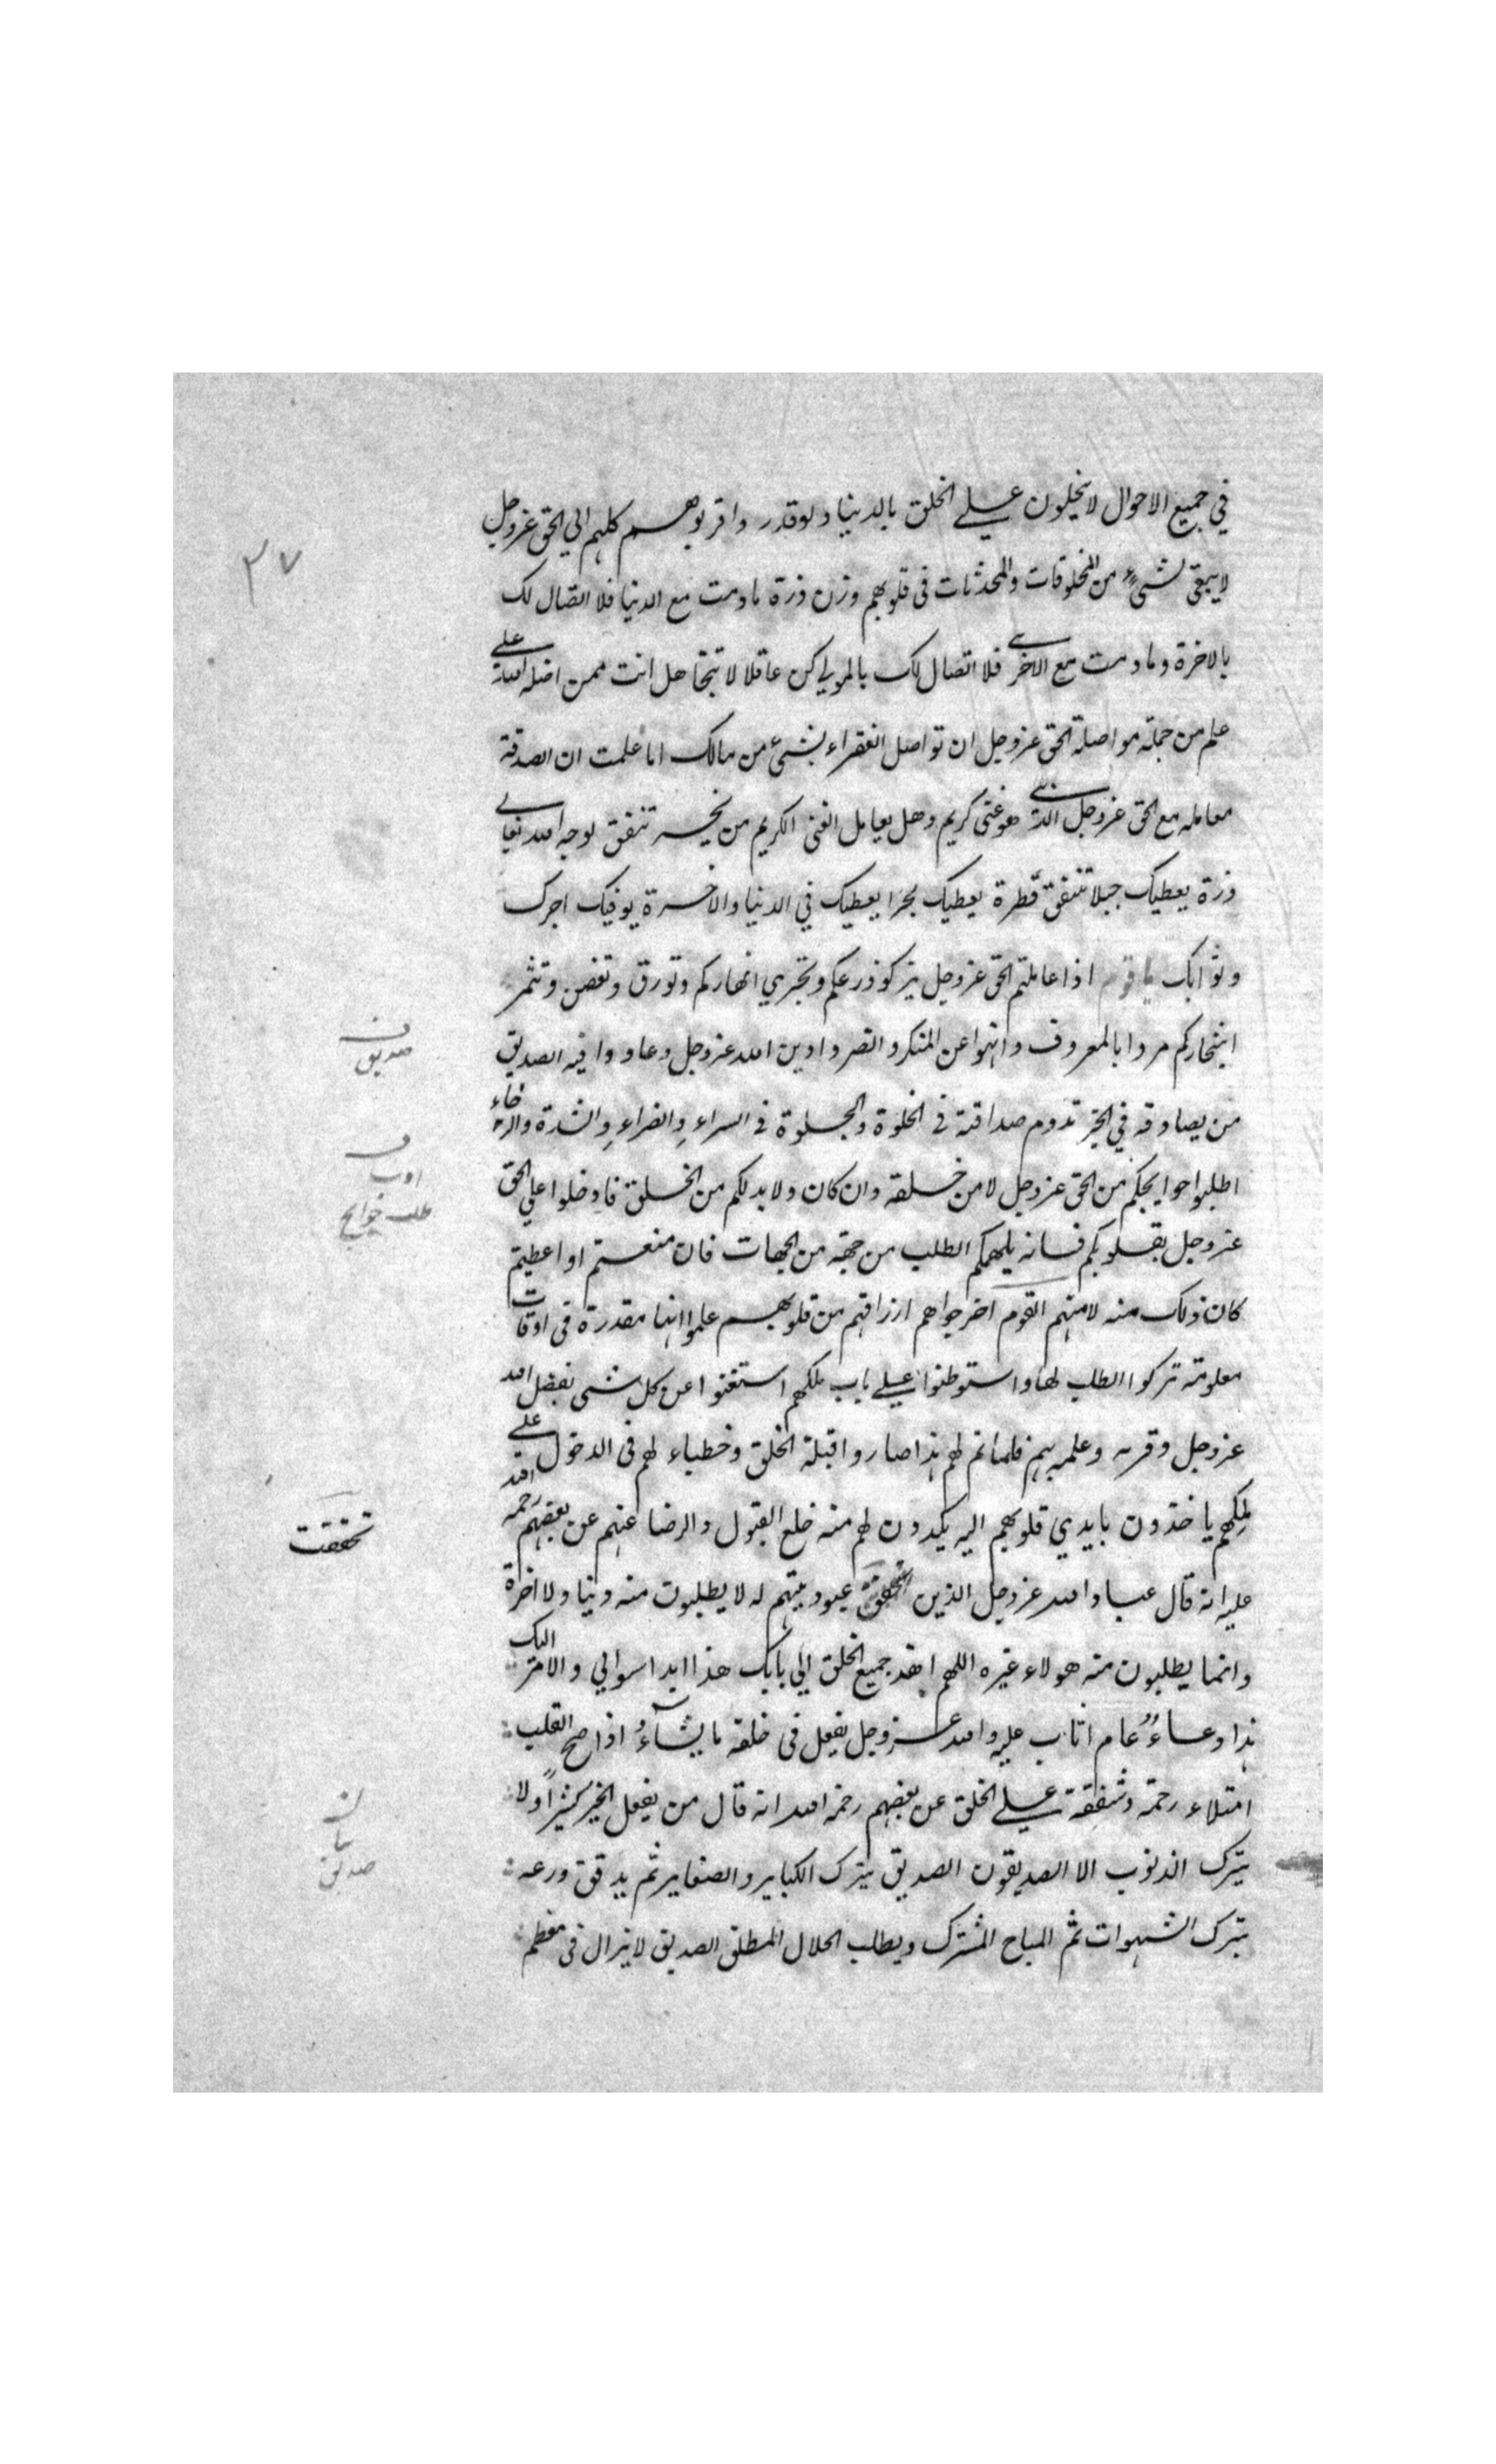 في جميع الاحوال لا يبخلون علي الخلق بالدنيا ولو قدروا قربوهم كلهم الي الحق عزوجل
لا يبقي لشيء من المخلوقات والمحدثات في قلوبهم وزن ذرة ما دمت مع الدنيا فلا اتصال لك
بالاخرة وما دمت مع الاخري فلا اتصال لك بالمولي كن عاقلا لا تتجاهل انت ممن اضله الله علي
علم من جملة مواصلة الحق عزوجل ان تواصل الفقراء بشئ من مالك اما علمت ان الصدقة
معاملة مع الحق عزوجل الذي هو غني كريم وهل يعامل الغني الكريم من يخسر تنفق لوجه الله تعالي
ذرة يعطيك جبلا تنفق قطرة يعطيك بحرا يعطيك في الدنيا والاخرة يوفيك اجرك
وثوابك يا قوم اذا عاملتم الحق عزوجل يزكو زرعكم وتجري انهاركم وتورق وتغصن وتثمر
اشجاركم مروا بالمعروف وانهوا عن المنكر وانصروا دين الله عزوجل وعادوا فيه الصديق
من يصادقه في الخير تدوم صداقته في الخلوة والجلوة في السراء والضراء والشدة والرخاء
اطلبوا حوايجكم من الحق عزوجل لا من خلقه وان كان ولا بد لكم من الخلق فادخلوا علي الحق
عزوجل بقلوبكم فانه يلهمكم الطلب من جهة من الجهات فان منعتم او اعطيتم
كان ذلك منه لا منهم القوم اخرجوا هم ارزاقهم من قلوبهم علموا انها مقدرة في اوقات
معلومة تركوا الطلب لها واستوطنوا علي باب ملكهم استغنوا عن كل شي بفضل الله
عزوجل وقربه وعلمه بهم فلما تم لهم هذا صاروا قبلة الخلق وخطباء لهم في الدخول علي
ملكهم ياخذون بايدي قلوبهم اليه يكدون لهم منه خلع القبول والرضا عنهم عن بعضهم رحمه الله
عليه انه قال عباد الله عزوجل الذين تحققت عبوديتهم له لا يطلبون منه دنيا ولا اخرة
وانما يطلبون منه هو لا غيره اللهم اهد جميع الخلق الي بابك هذا ابدا سوالي والامر اليك
هذا دعاء عام اثاب عليه والله عزوجل يفعل في خلقه ما يشاء اذا صح القلب
امتلاء رحمة وشفقة علي الخلق عن بعضهم رحمه الله انه قال من يفعل الخير كثيرا ولا
يترك الذنوب الا الصديقون الصديق يترك الكباير والصغاير ثم يدقق ورعه
بترك الشهوات ثم المباح المشترك ويطلب الحلال المطلق الصديق لا يزال في معظم
٣٧
صديق
ادب
طلب حوايج
تحققت
بيان
صديق